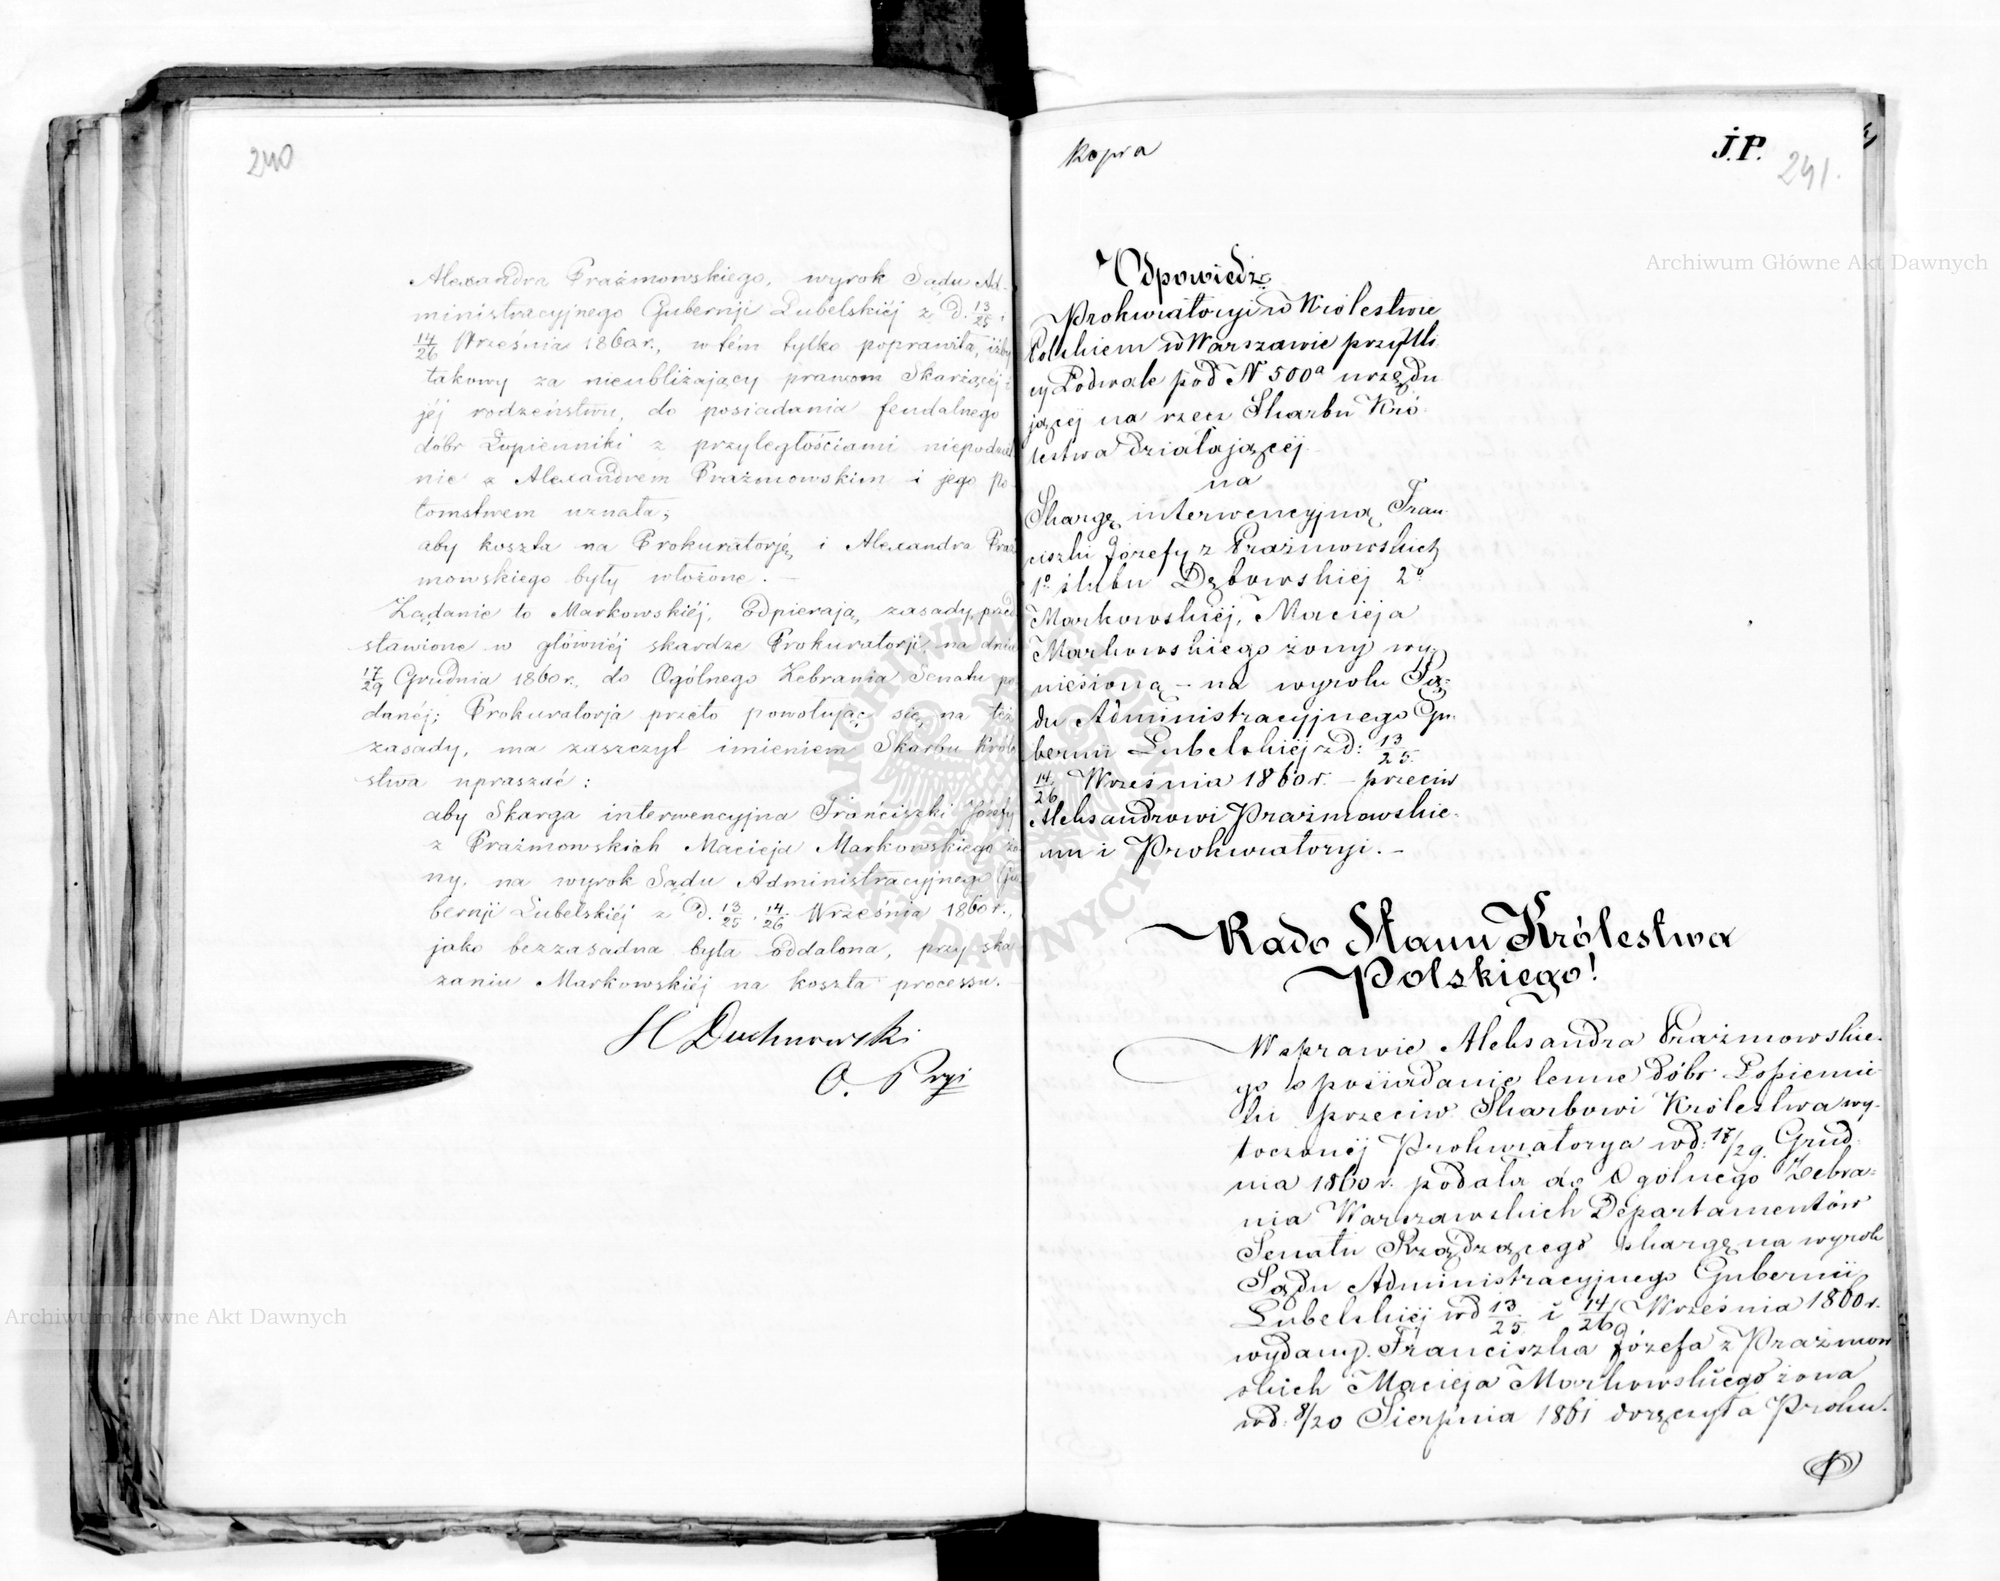 240
Alexandra Prażmowskiego, wyrok Sądu Ad-
ministracyjnego Gubernji Lubelskiéj z D. 13/25,
14/26 Września 1860 r., w tém tylko poprawiła, iżby
takowy za nieubliżający prawom Skarżącéj i
jéj rodzeństwu, do posiadania feudalnego
dóbr Łopienniki z przyległościami niepodziel
nie z Alexandrem Prażmowskim i jego po-
tomstwem uznała;
aby koszta na Prokuratorję i Alexandra Praż
mowskiego były włożone. —
Żądanie to Markowskiéj, odpierają zasady, przed
stawione w głównéj skardze Prokuratorji na dniu
17/29 Grudnia 1860 r. do Ogólnego Zebrania Senatu po
danéj; Prokuratorja przeto powołując się na też
zasady, ma zaszczyt imieniem Skarbu Króle
stwa upraszać:
aby Skarga interwencyjna Franciszki Józefy
z Prażmowskich Macieja Markowskiego żo
ny, na wyrok Sądu Administracyjnego Gu
bernji Lubelskiéj z D. 13/25, 14/26 Września 1860 r.,
jako bezzasadna była oddalona, przy ska
zaniu Markowskiéj na koszta processu.
H Duchnowski
O. Pryi
Kopia
J.P.
241.
Odpowiedź
Prokuratoryi w Królestwie
Polskiem w Warszawie przy Uli
cy Podwale pod N 500a urzędu
jącej na rzecz Skarbu Kró-
lestwa działającéj
na
Skargę interwencyjną Fran
ciszki Józefy z Prażmowskich
1o ślubu Dębowskiéj 2o
Markowskiéj, Macieja
Markowskiego żony wy
niesioną — na wyroku Są-
du Administracyjnego Gu-
bernii Lubelskiéj z D: 13/25
14/26 Września 1860 r. — przeciw
Aleksandrowi Prażmowskie-
mu i Prokuratoryi. —
Rado Stanu Królestwa
Polskiego!
W sprawie Aleksandra Prażmowskie-
go o posiadanie lenne dóbr Łopienni
ki przeciw Skarbowi Królestwa wy-
toczonéj Prokuratorya w d: 17/29. Grud-
nia 1860 r. podała do Ogólnego Zebra-
nia Warszawskich Departamentów
Senatu Rządzącego skargę na wyrok
Sądu Administracyjnego Gubernii
Lubelskiéj w d 13/25 i 14/26 Września 1860 r.
wydany. Franciszka Józefa z Prażmow
skich Macieja Markowskiego żona
w d: 8/20 Sierpnia 1861 doręczyła Proku-
Archiwum Główne Akt Dawnych
Archiwum Główne Akt Dawnych